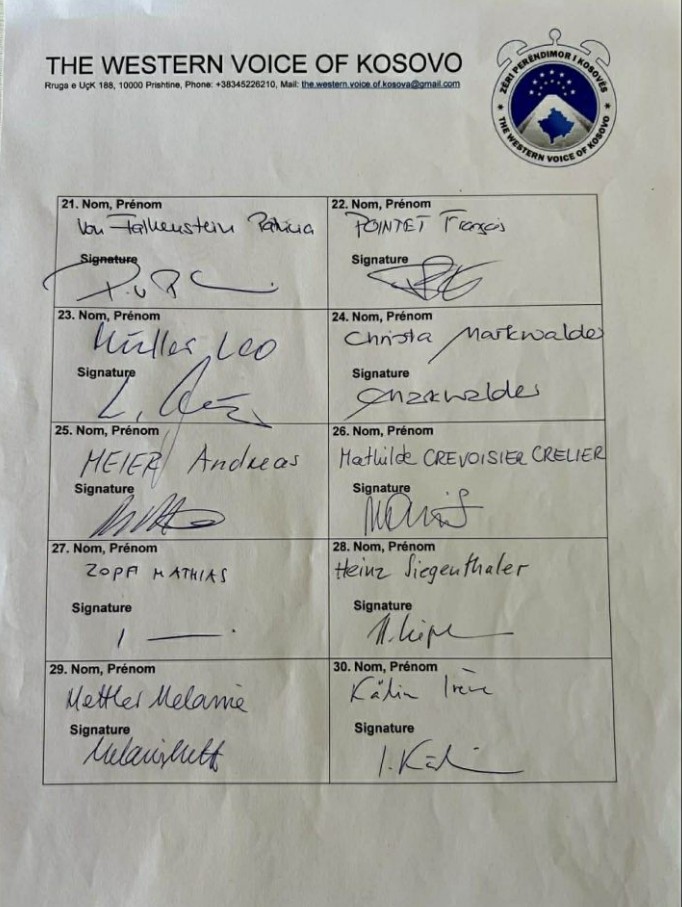 THE WESTERN VOICE OF KOSOVO
Rruga e UçK 188, 10000 Prishtine, Phone: +38345226210, Mail: the.western.voice.of.kosova@gmail.com
ZËRI PERËNDIMOR I KOSOVËS
THE WESTERN VOICE OF KOSOVO
21. Nom, Prénom
Von Falkenstein Patricia
Signature
22. Nom, Prénom
POINTET François
Signature
23. Nom, Prénom
Müller Leo
Signature
24. Nom, Prénom
Christa Markwalder
Signature
CMarkwalder
25. Nom, Prénom
MEIER Andreas
Signature
26. Nom, Prénom
Mathilde CREVOISIER CRELIER
Signature
27. Nom, Prénom
ZOPFI MATHIAS
Signature
28. Nom, Prénom
Heinz Siegenthaler
Signature
29. Nom, Prénom
Mettler Melanie
Signature
30. Nom, Prénom
Kälin Irène
Signature
I. Kä